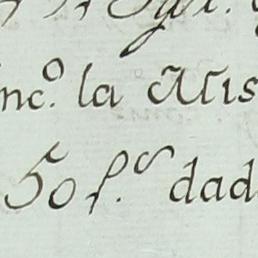 nc.º la Mis
50 p.s dad